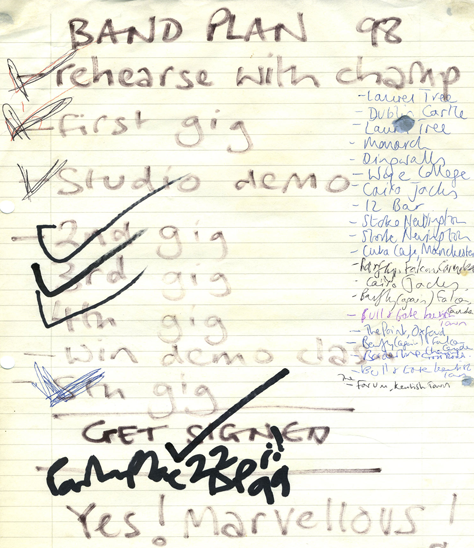 BAND PLAN 98
- rehearse with champ
- first gig
- Studio demo
- 2nd gig
- 3rd gig
- 4th gig
- win demo clash
- 5th gig
GET SIGNED
22 Sep 99
Yes! Marvellous!
- Laurel Tree
- Dublin Castle
- Laurel Tree
- Monarch
- Dingwalls
- Wye College
- Cairo Jacks
- 12 Bar
- Stoke Newington
- Stoke Newington
- Cuba Cafe, Manchester
- Barfly, Falcon, Camden
- Cairo Jacks
- Barfly (again) Falcon
- Bull & Gate Kentish Town
- The Point, Oxford
- Barfly (again) Falcon
- Borderline
- Bull & Gate Kentish Town
- Forum, Kentish Town